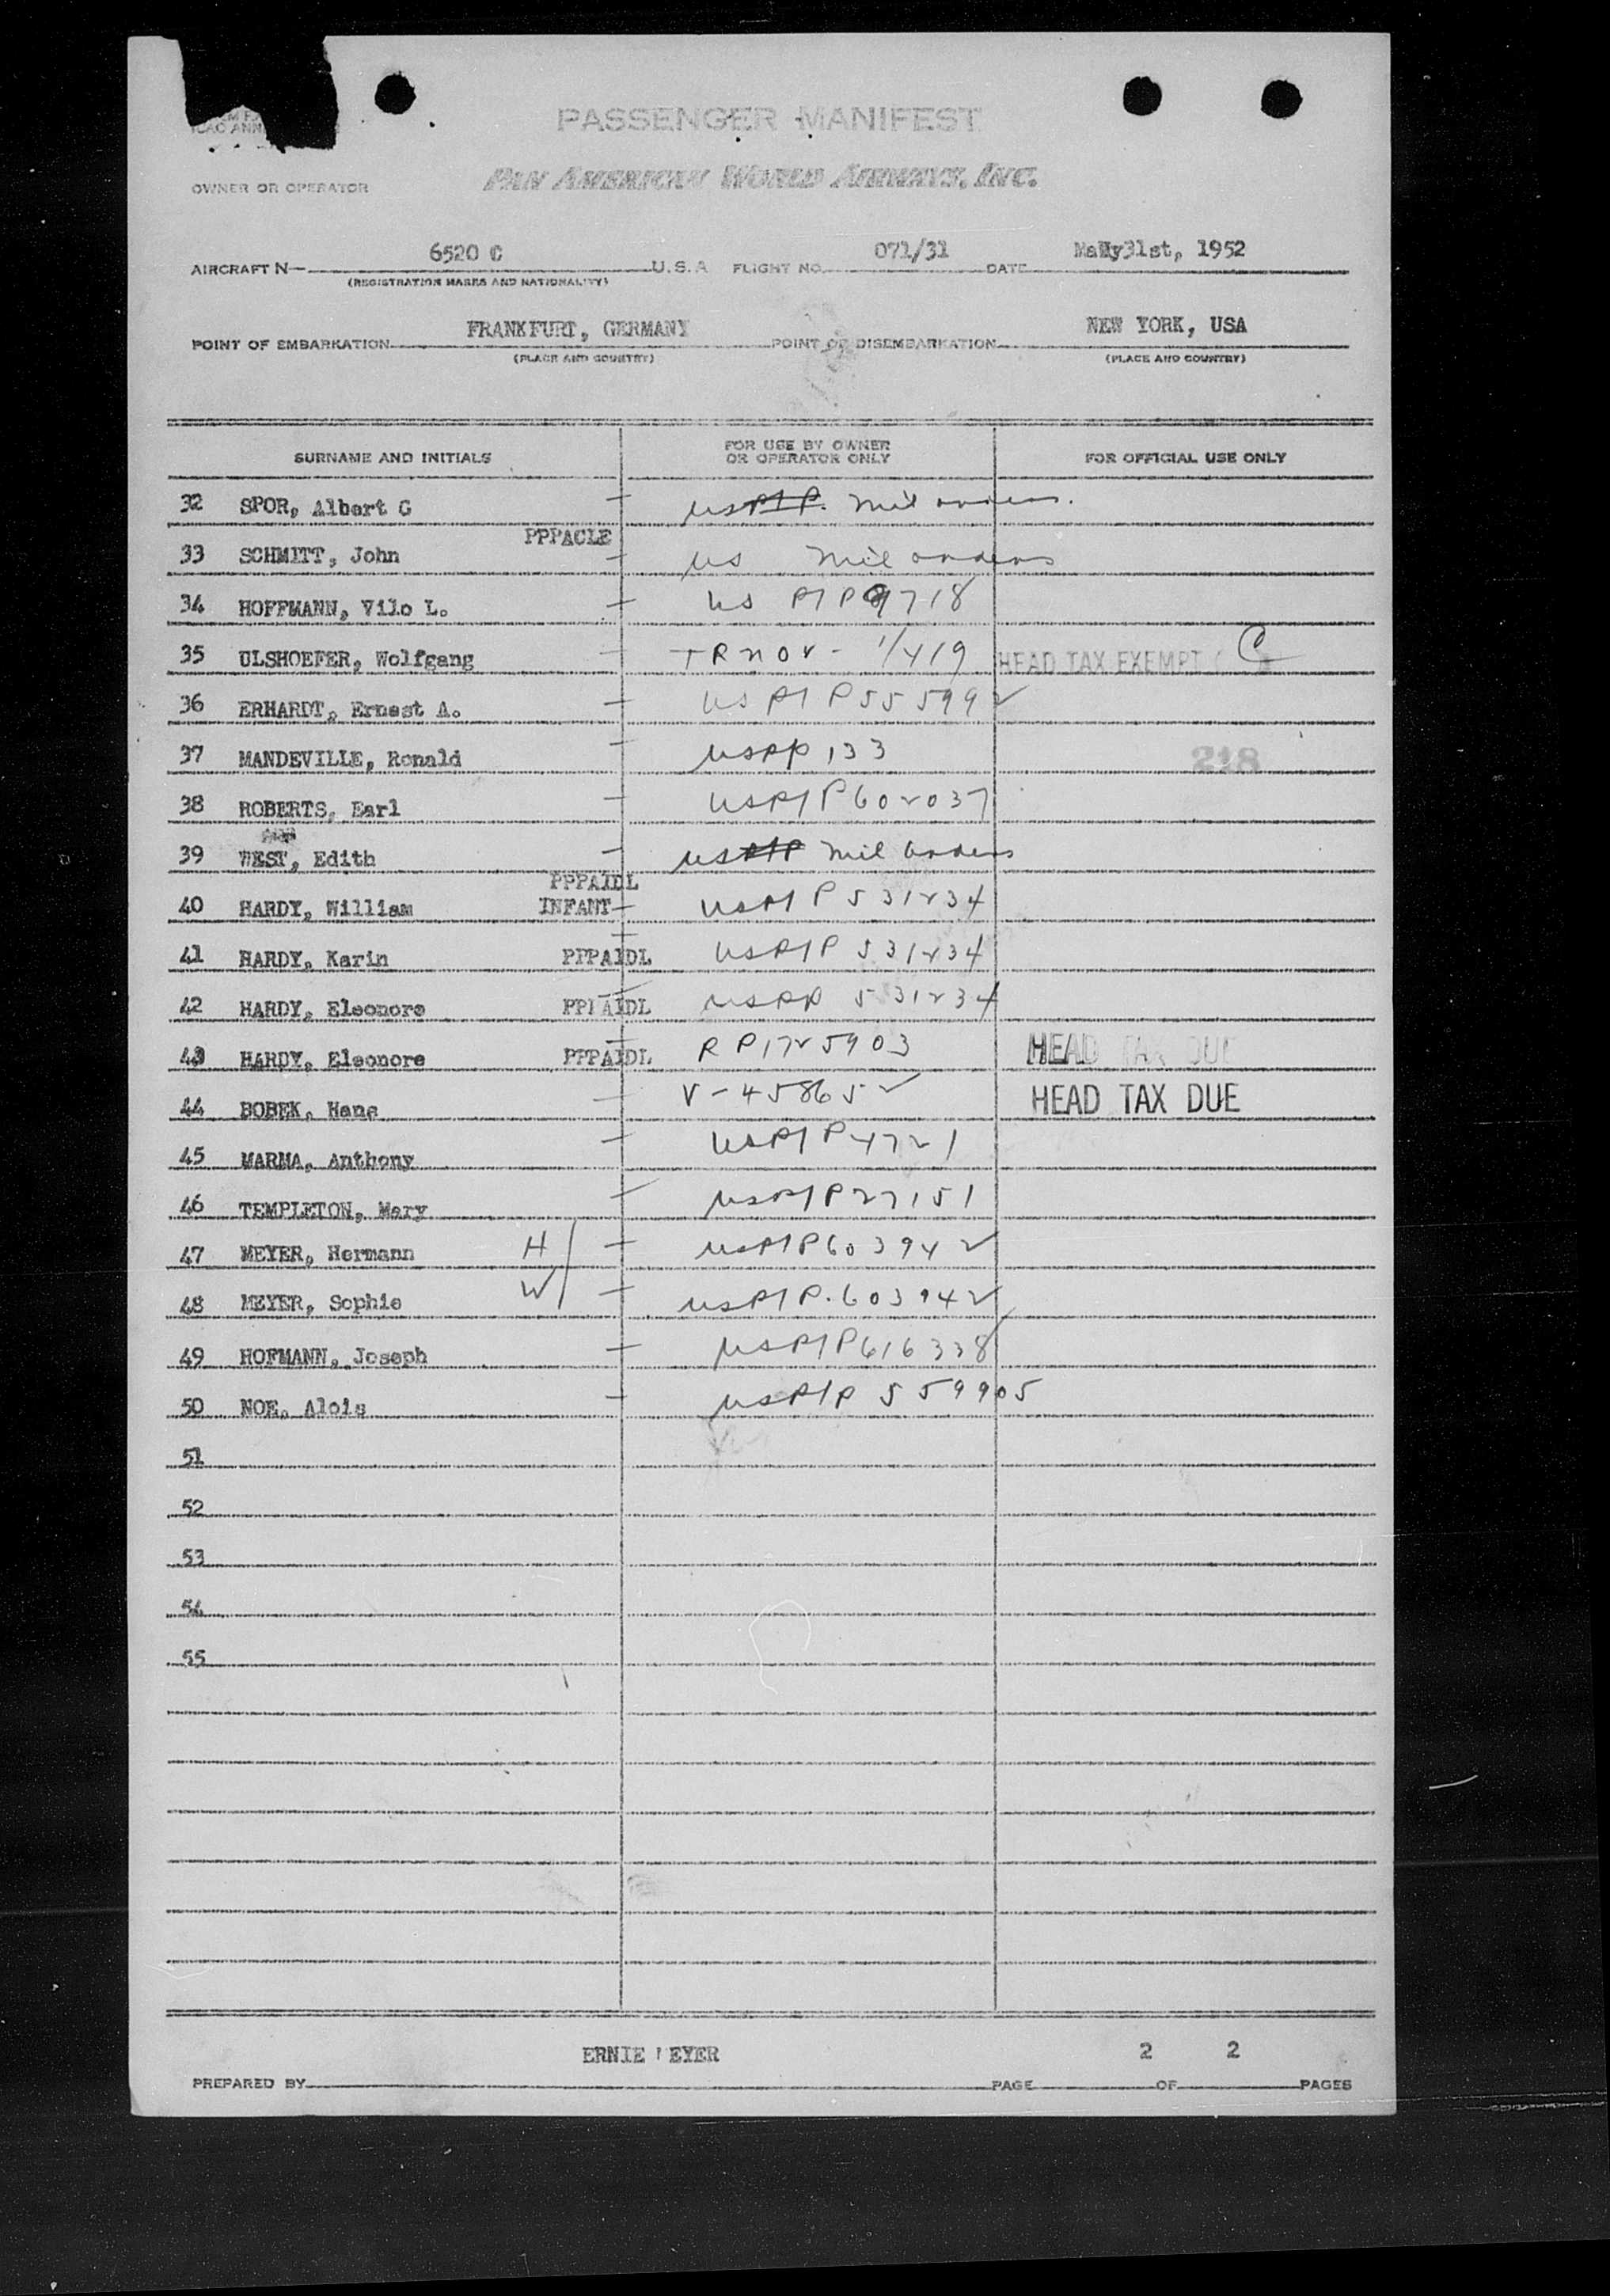 PASSENGER MANIFEST
PAN AMERICAN WORLD AIRWAYS, INC.
OWNER OR OPERATOR
AIRCRAFT N— 6520 C U.S.A FLIGHT NO. 071/31 DATE 31st, 1952
(REGISTRATION MARKS AND NATIONALITY)
POINT OF EMBARKATION FRANKFURT, GERMANY POINT OF DISEMBARKATION NEW YORK, USA
(PLACE AND COUNTRY) (PLACE AND COUNTRY)
SURNAME AND INITIALS FOR USE BY OWNER OR OPERATOR ONLY FOR OFFICIAL USE ONLY
32 SPOR, Albert G — US PP. Mil orders.
PPPACLE
33 SCHMITT, John — US Mil orders
34 HOFFMANN, Vilo L. — US PP 9718
35 ULSHOEFER, Wolfgang — 1/419 HEAD TAX EXEMPT ( C
36 ERHARDT, Ernest A. — US PP 555992
37 MANDEVILLE, Ronald — USPP 133 218
38 ROBERTS, Earl — USPP 602037
39 WEST, Edith — US PP Mil orders
PPPAIDL
40 HARDY, William INFANT — USPP 531234
41 HARDY, Karin PPPAIDL — USPP 531234
42 HARDY, Eleonore PPPAIDL — USPP 531234
43 HARDY, Eleonore PPPAIDL — RP 1725903 HEAD TAX DUE
44 BOBEK, Hans — V-458652 HEAD TAX DUE
45 MARMA, Anthony — USPP 4721
46 TEMPLETON, Mary — USPP 27151
47 MEYER, Hermann H — USPP 603942
48 MEYER, Sophie W — USPP. 603942
49 HOFMANN, Joseph — USPP 616338
50 NOE, Alois — USPP 559905
51
52
53
54
55
ERNIE MEYER 2 2
PREPARED BY PAGE OF PAGES